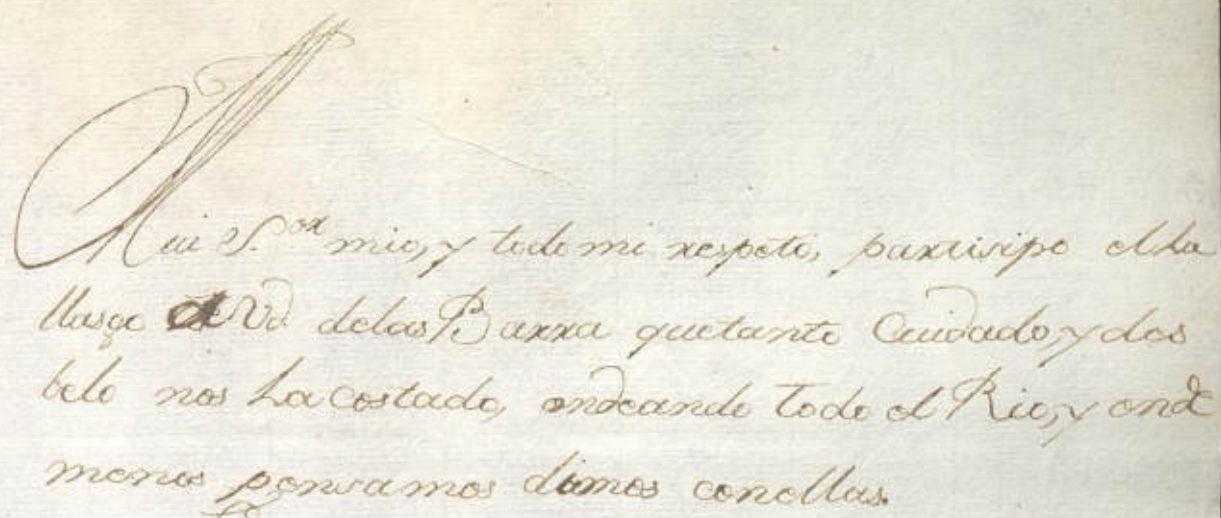 Mui S.or mio, y todo mi respeto, partisipo el ha
llasgo a Vd. delas Barra quetanto Cuidado, y des
belo nos ha costado, ondeando todo el Rio, y onde
menos pensamos dimos conellas.